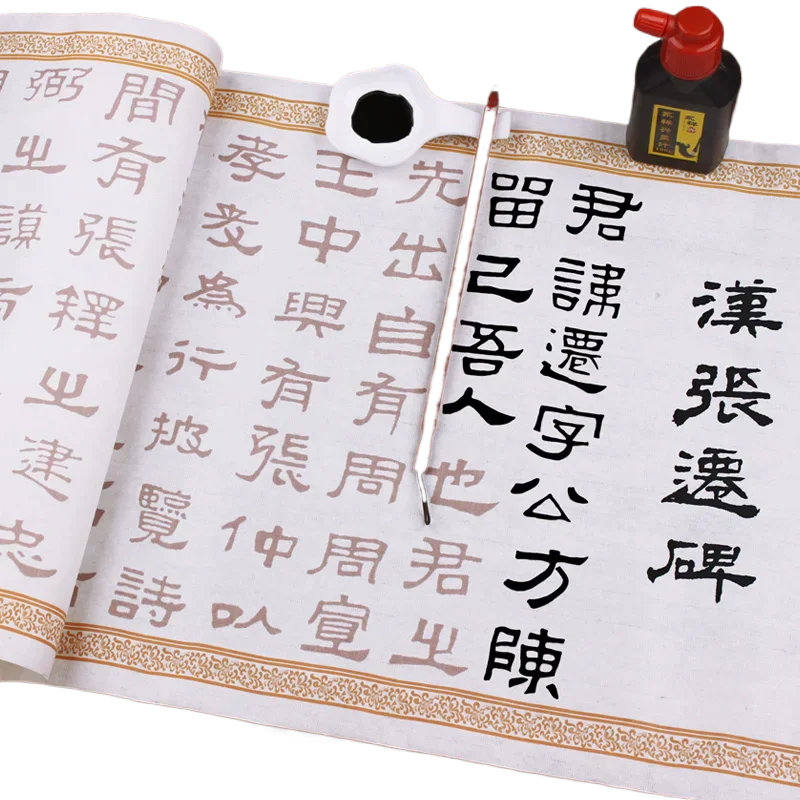 漢張遷碑
君諱遷字公方陳
留己吾人也君之
先出自有周周宣
王中興有張仲以
孝友為行披覽詩
間有張釋之建忠
弼之謨